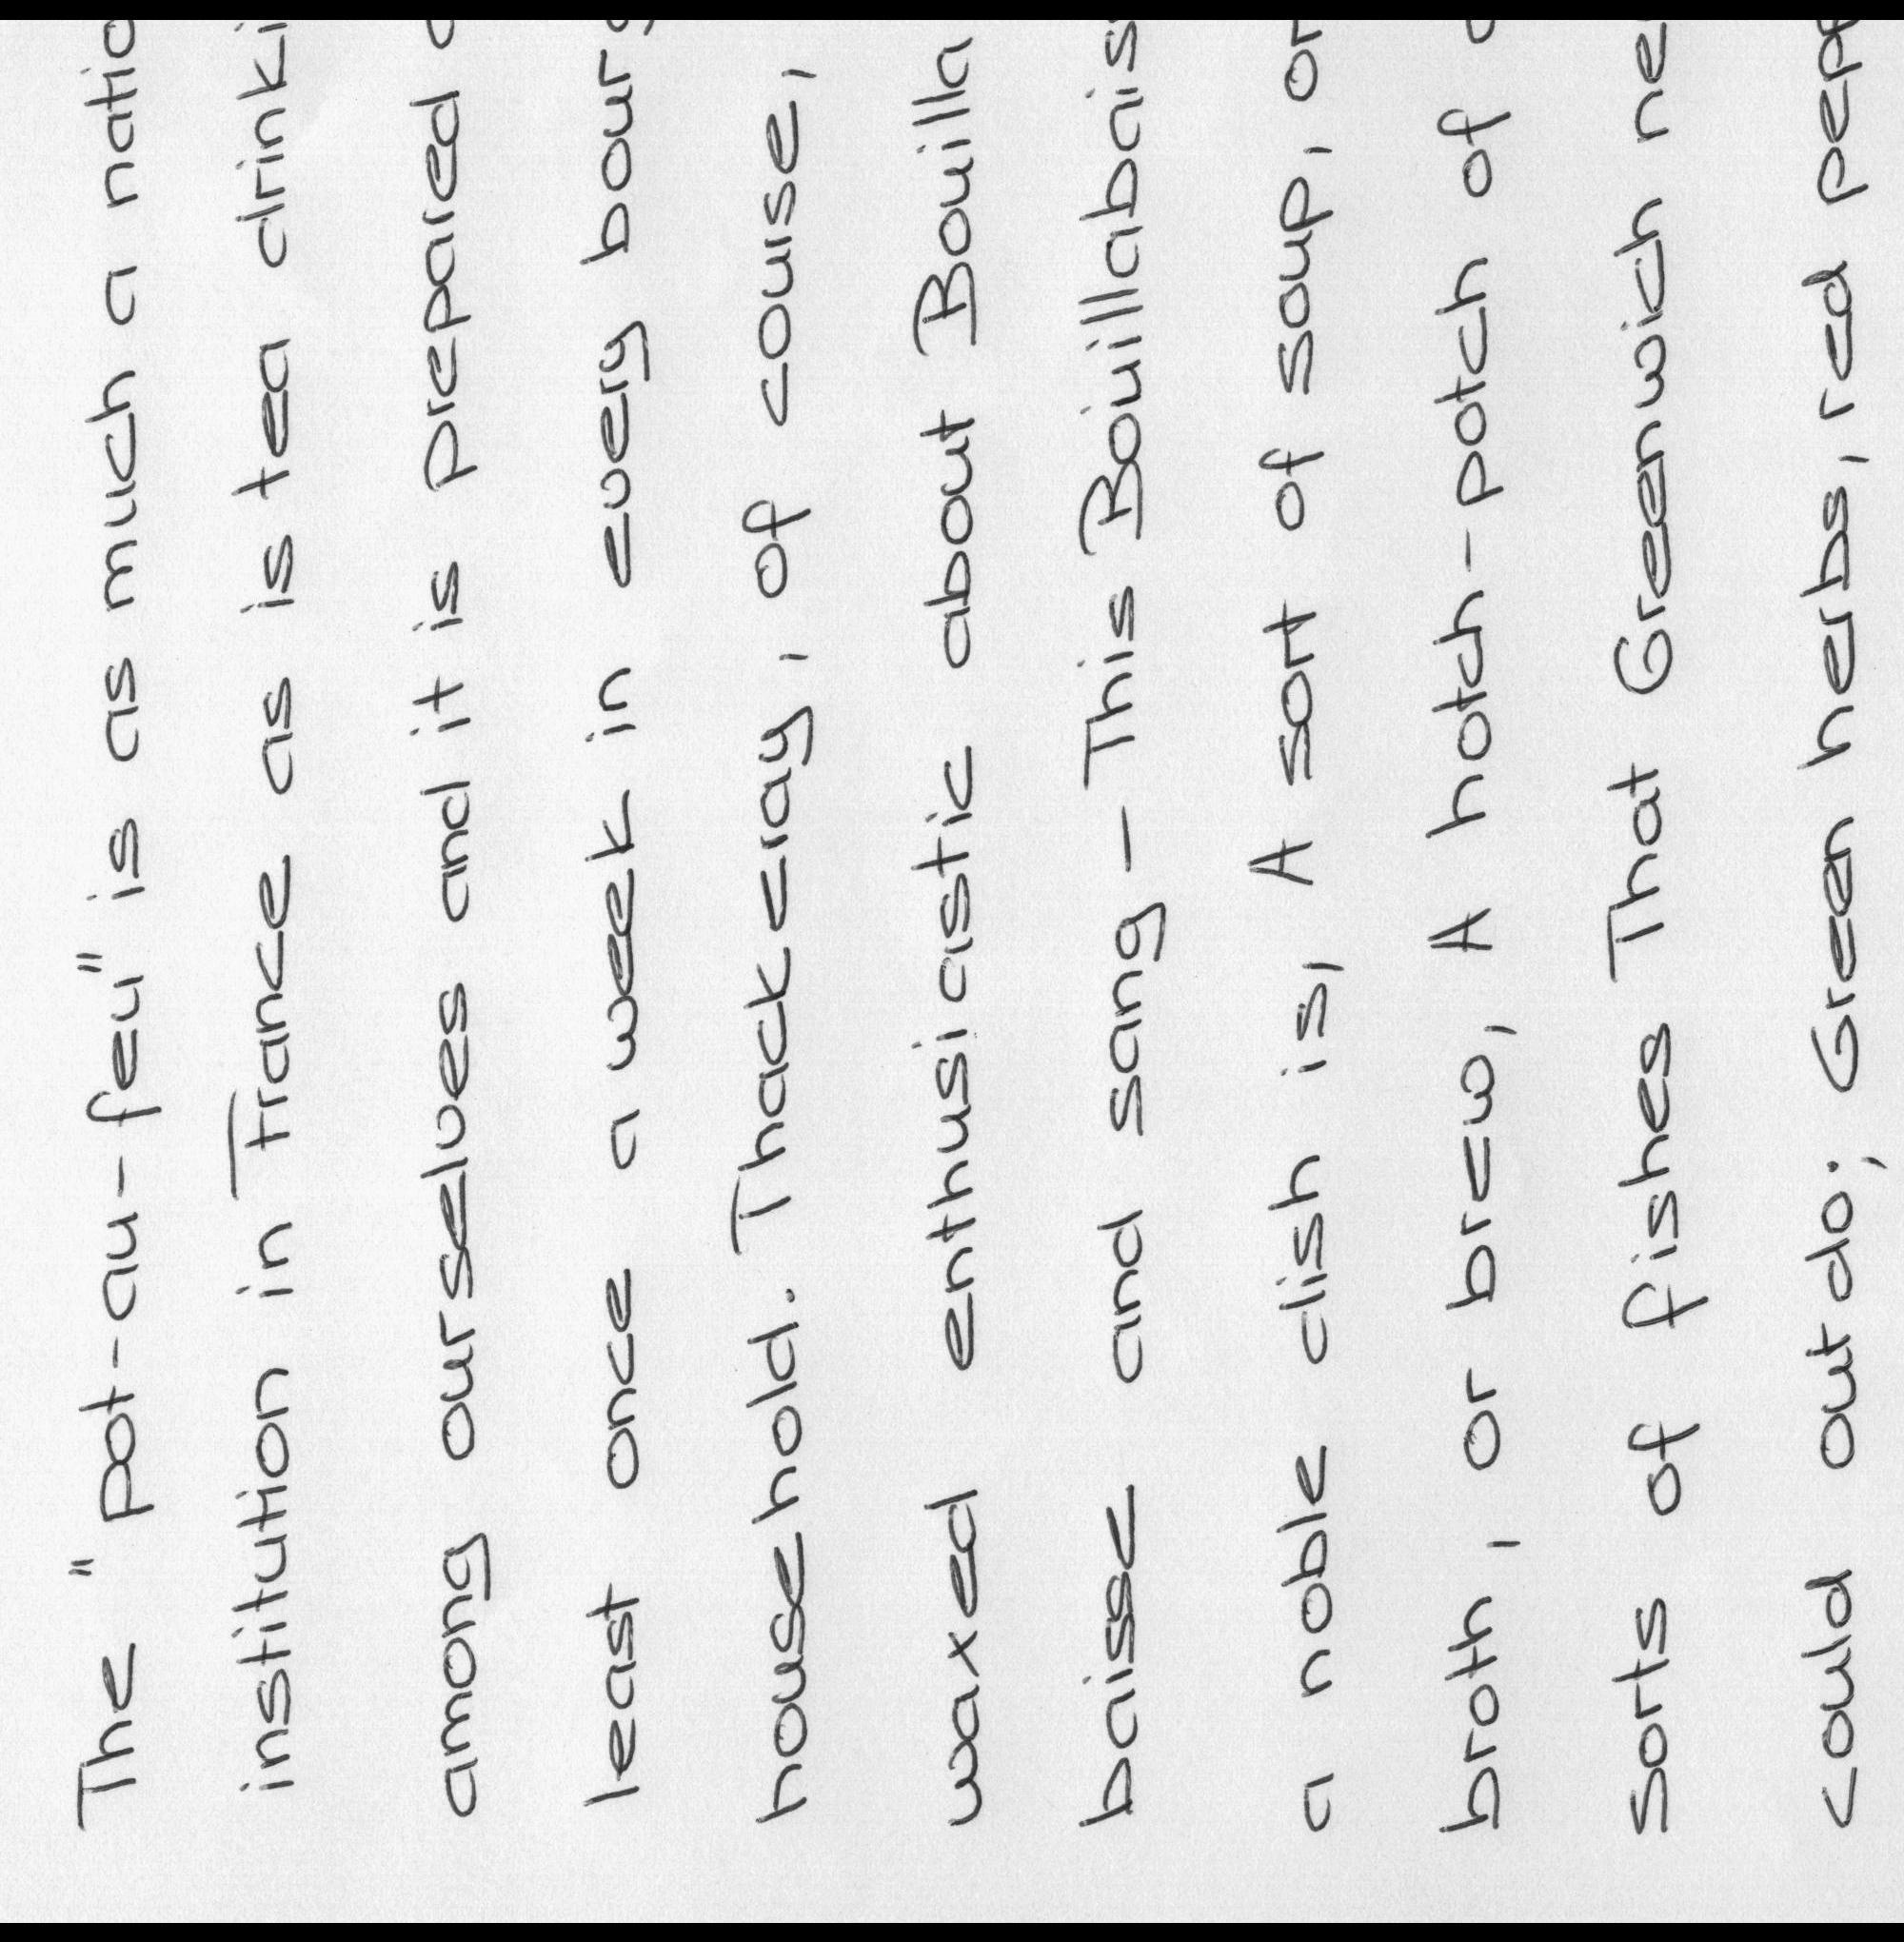 The "pot-au-feu" is as much a natio
institution in France as is tea drinki
among ourselves and it is prepared a
least once a week in every bourg
household. Thackeray, of course,
waxed enthusiastic about Bouilla
baisse and sang - This Bouillabais
a noble dish is, A sort of soup, or
broth, or brew, A hotch-potch of a
sorts of fishes That Greenwich ne
could outdo; Green herbs, red pepp